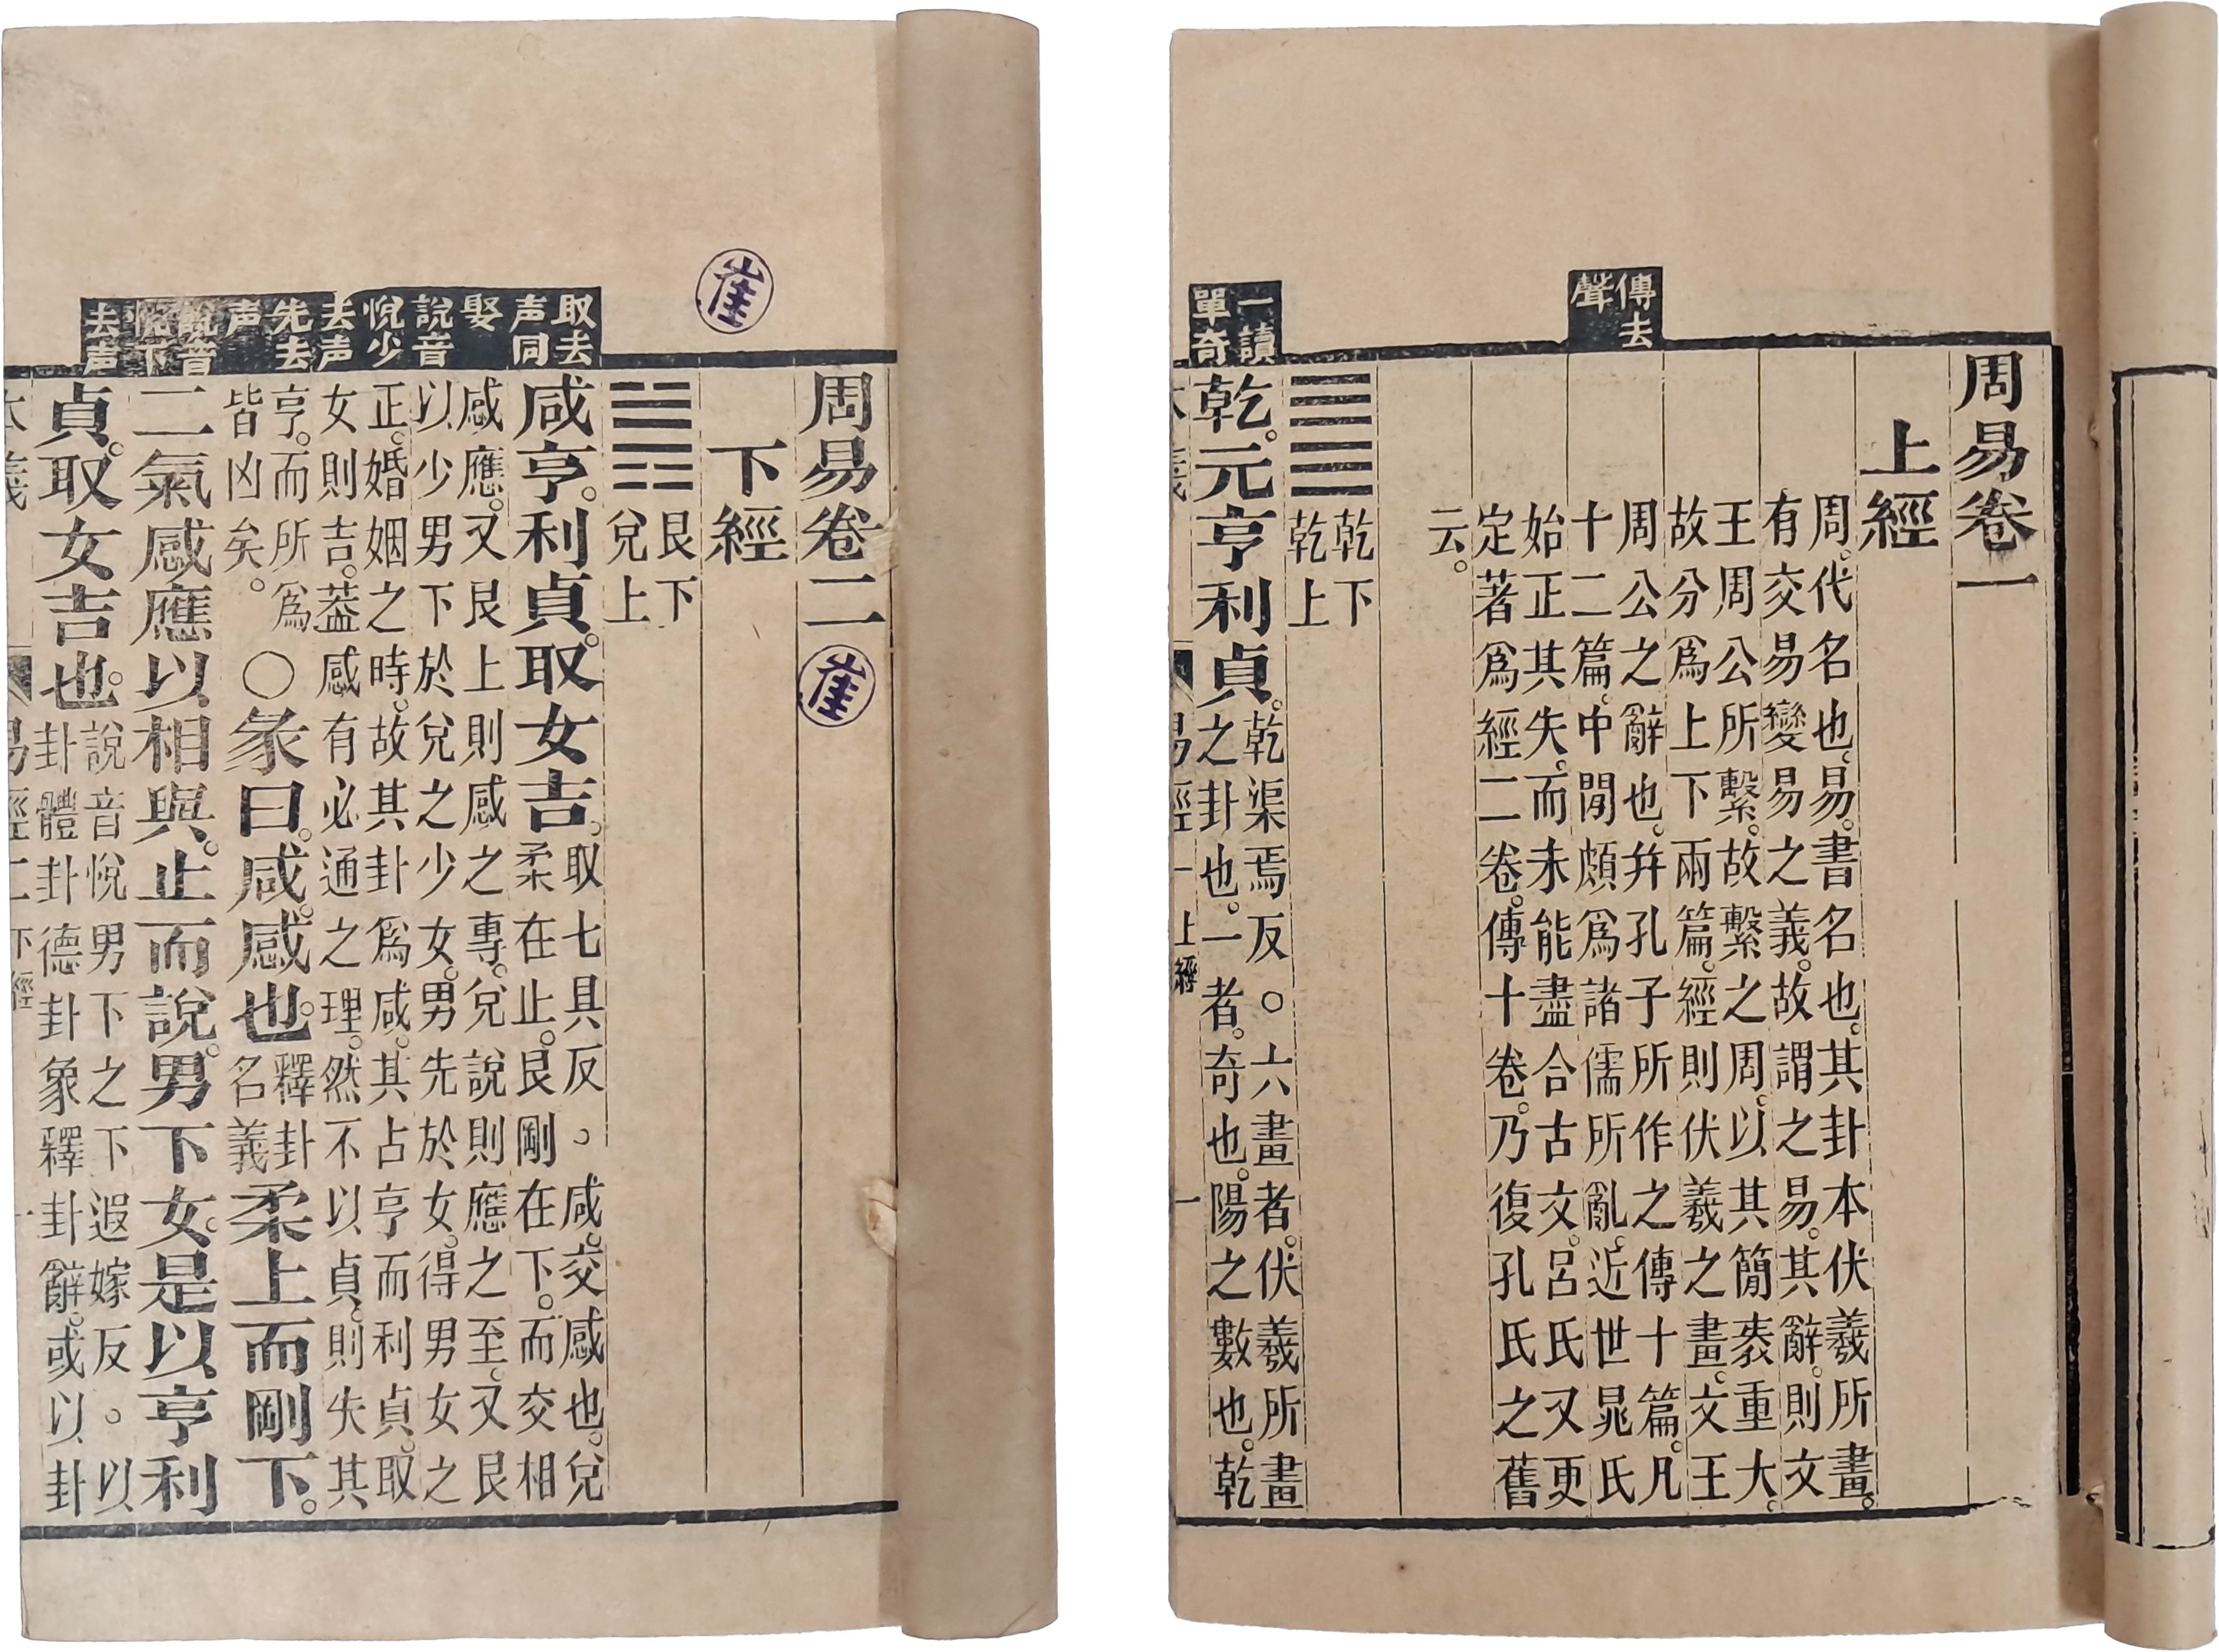 周易卷一
上經
傳去
聲
周。代名也。易。書名也。其卦本伏羲所畫。
有交易變易之義。故謂之易。其辭。則文
王周公所繫。故繫之周。以其簡袠重大。
故分爲上下兩篇。經則伏羲之畫。文王
周公之辭也。幷孔子所作之傳十篇。凡
十二篇。中閒頗爲諸儒所亂。近世晁氏
始正其失。而未能盡合古文。呂氏又更
定著爲經二卷。傳十卷。乃復孔氏之舊
云。
乾下
乾上
一讀
單奇
乾。元亨利貞。
乾渠焉反。○六畫者。伏羲所畫
之卦也。一者。奇也。陽之數也。乾
易經一 上經 一
崔
周易卷二
崔
下經
艮下
兌上
取去
声同
娶
說音
悅少
去声
先去
声
說音
悅下
去声
咸。亨。利貞。取女吉。
取七具反。○咸。交感也。兌
柔在止。艮剛在下。而交相
感應。又艮上則感之專。兌說則應之至。又艮
以少男下於兌之少女。男先於女。得男女之
正。婚姻之時。故其卦爲咸。其占亨而利貞。取
女則吉。葢感有必通之理。然不以貞。則失其
亨。而所爲
皆凶矣。
○彖曰。咸。感也。
釋卦
名義
柔上而剛下。
二氣感應以相與。止而說。男下女。是以亨利
貞。取女吉也。
說音悅男下之下遐嫁反。○以
卦體卦德卦象釋卦辭。或以卦
本義 易經二 下經 一